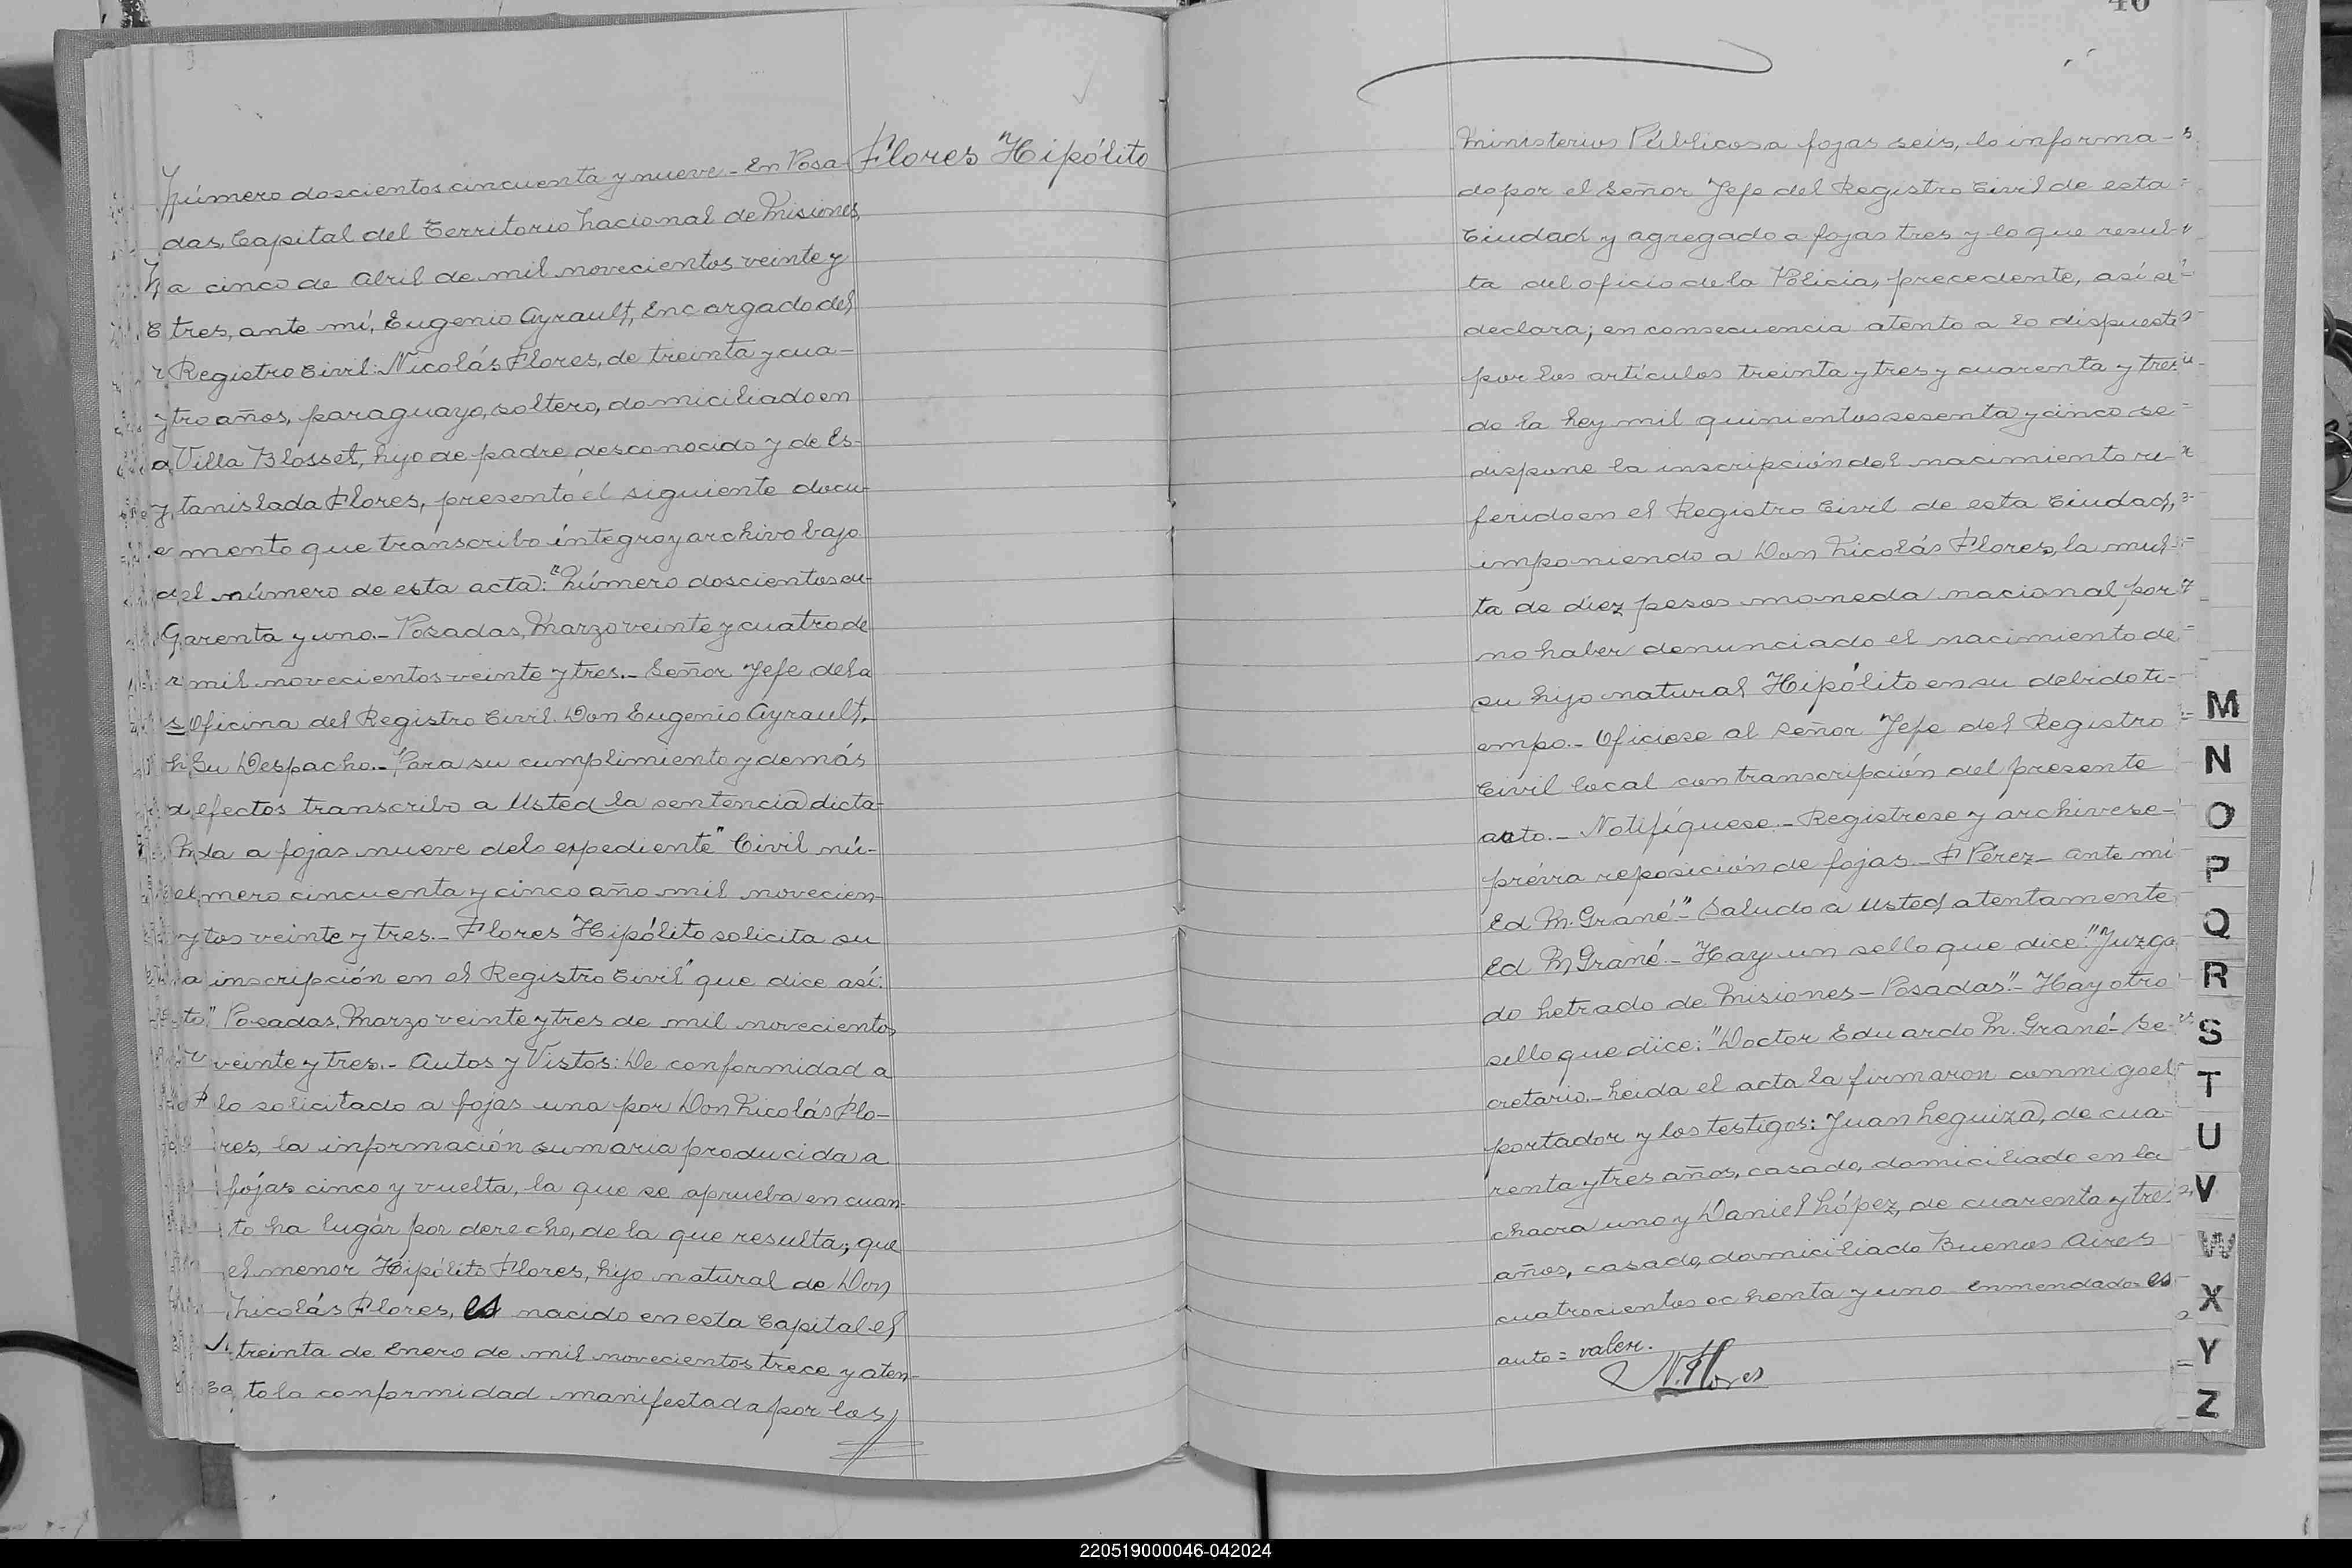 Flores Hipólito
Número doscientos cincuenta y nueve.- En Posa-
das, Capital del Territorio Nacional de Misiones,
a cinco de Abril de mil novecientos veinte y
tres, ante mí, Eugenio Ayrault, Encargado del
Registro Civil: Nicolás Flores, de treinta y cua-
tro años, paraguayo, soltero, domiciliado en
Villa Blosset, hijo de padre desconocido y de Es-
tanislada Flores, presentó el siguiente docu-
mento que transcribo íntegro y archivo bajo
el número de esta acta: "Número doscientos cu-
arenta y uno.- Posadas, Marzo veinte y cuatro de
mil novecientos veinte y tres.- Señor Jefe de la
Oficina del Registro Civil. Don Eugenio Ayrault.
Su Despacho.- Para su cumplimiento y demás
efectos transcribo a Usted la sentencia dicta-
da a fojas nueve delo expediente" Civil nú-
mero cincuenta y cinco año mil novecien-
tos veinte y tres.- Flores Hipólito solicita su
inscripción en el Registro Civil" que dice así:
" Posadas, Marzo veinte y tres de mil novecientos
veinte y tres.- Autos y Vistos: De conformidad a
lo solicitado a fojas una por Don Nicolás Flo-
res, la información sumaria producida a
fojas cinco y vuelta, la que se aprueba en cuan-
to ha lugar por derecho, de la que resulta; que
el menor Hipólito Flores, hijo natural de Don
Nicolás Flores, es nacido en esta Capital el
treinta de Enero de mil novecientos trece y aten-
to la conformidad manifestada por los
46
Ministerios Públicos a fojas seis, lo informa-
do por el Señor Jefe del Registro Civil de esta
Ciudad y agregado a fojas tres y lo que resul-
ta del oficio de la Policia, precedente, así se
declara; en consecuencia atento a lo dispuesto
por los artículos treinta y tres y cuarenta y tres
de la Ley mil quinientos sesenta y cinco se
dispone la inscripción del nacimiento re-
ferido en el Registro Civil de esta Ciudad,
imponiendo a Don Nicolás Flores, la mul-
ta de diez pesos moneda nacional, por
no haber denunciado el nacimiento de
su hijo natural Hipólito en su debido ti-
empo.- Oficiese al Señor Jefe del Registro
Civil local con transcripción del presente
auto.- Notifíquese.- Registrese y archivese
prévia reposición de fojas.- F Pérez- Ante mí
Ed M. Grané"- Saludo a Usted atentamente
Ed M Grané.- Hay un sello que dice: "Juzga
do Letrado de Misiones- Posadas"- Hay otro
sello que dice: "Doctor Eduardo M. Grané- Se-
cretario.- Leida el acta la firmaron conmigo el
portador y los testigos: Juan Leguiza, de cua-
renta y tres años, casado, domiciliado en la
chacra uno y Daniel López, de cuarenta y tres
años, casado, domiciliado Buenos Aires
cuatrocientos ochenta y uno enmendado= es
auto = valen.
N. Flores
M
N
O
P
Q
R
S
T
U
V
W
X
Y
Z
220519000046-042024